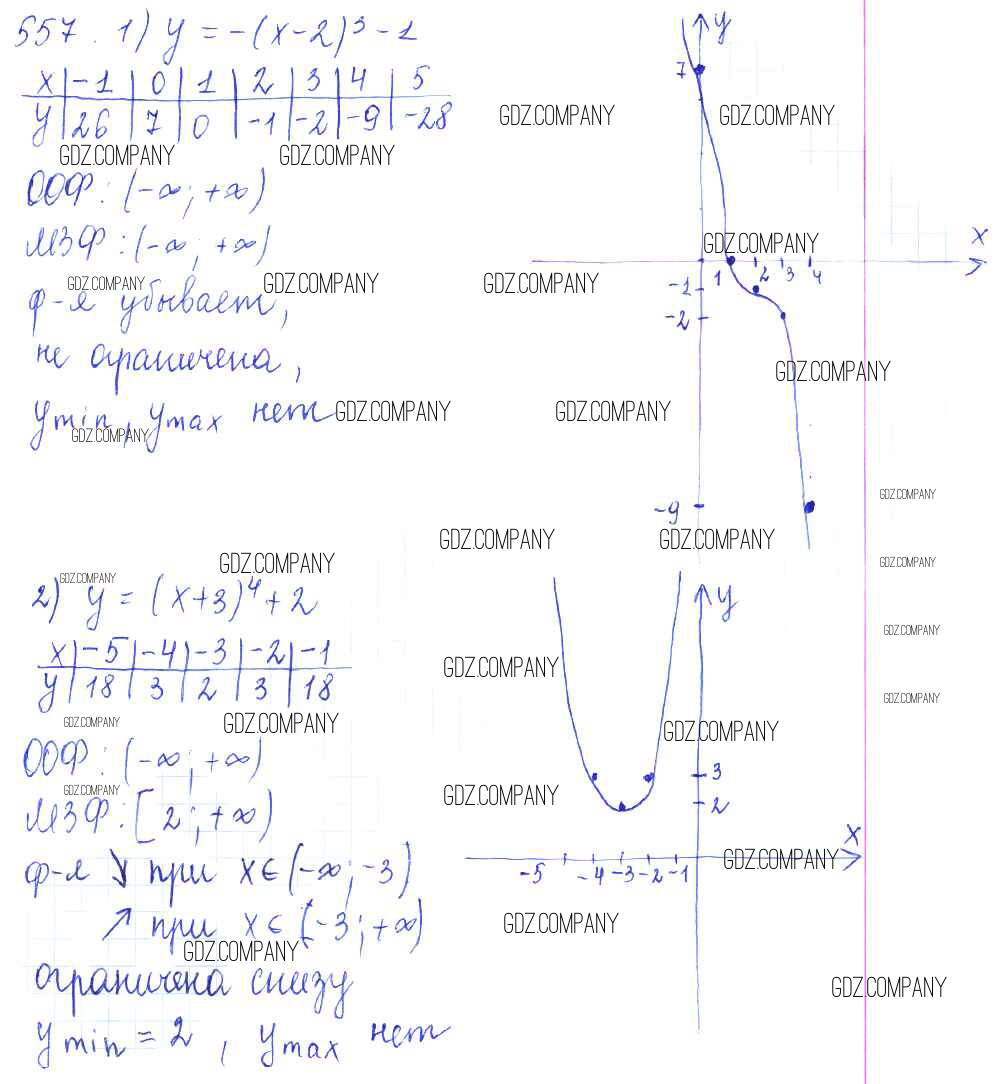 557. 1) y = -(x-2)³ - 1
x | -1 | 0 | 1 | 2 | 3 | 4 | 5
y | 26 | 7 | 0 | -1 | -2 | -9 | -28
ООФ: (-∞; +∞)
МЗФ: (-∞; +∞)
ф-я убывает,
не ограничена,
y min, y max нет
y
7
x
1 2 3 4
-1
-2
-9
2) y = (x+3)⁴ + 2
x | -5 | -4 | -3 | -2 | -1
y | 18 | 3 | 2 | 3 | 18
ООФ: (-∞; +∞)
МЗФ: [2; +∞)
ф-я ↘ при x ∈ (-∞; -3]
↗ при x ∈ [-3; +∞)
ограничена снизу
y min = 2, y max нет
y
3
2
x
-5 -4 -3 -2 -1
GDZ.COMPANY GDZ.COMPANY
GDZ.COMPANY GDZ.COMPANY
GDZ.COMPANY
GDZ.COMPANY GDZ.COMPANY GDZ.COMPANY
GDZ.COMPANY
GDZ.COMPANY GDZ.COMPANY
GDZ.COMPANY
GDZ.COMPANY
GDZ.COMPANY GDZ.COMPANY
GDZ.COMPANY GDZ.COMPANY
GDZ.COMPANY
GDZ.COMPANY
GDZ.COMPANY
GDZ.COMPANY GDZ.COMPANY GDZ.COMPANY
GDZ.COMPANY
GDZ.COMPANY GDZ.COMPANY
GDZ.COMPANY
GDZ.COMPANY
GDZ.COMPANY
GDZ.COMPANY